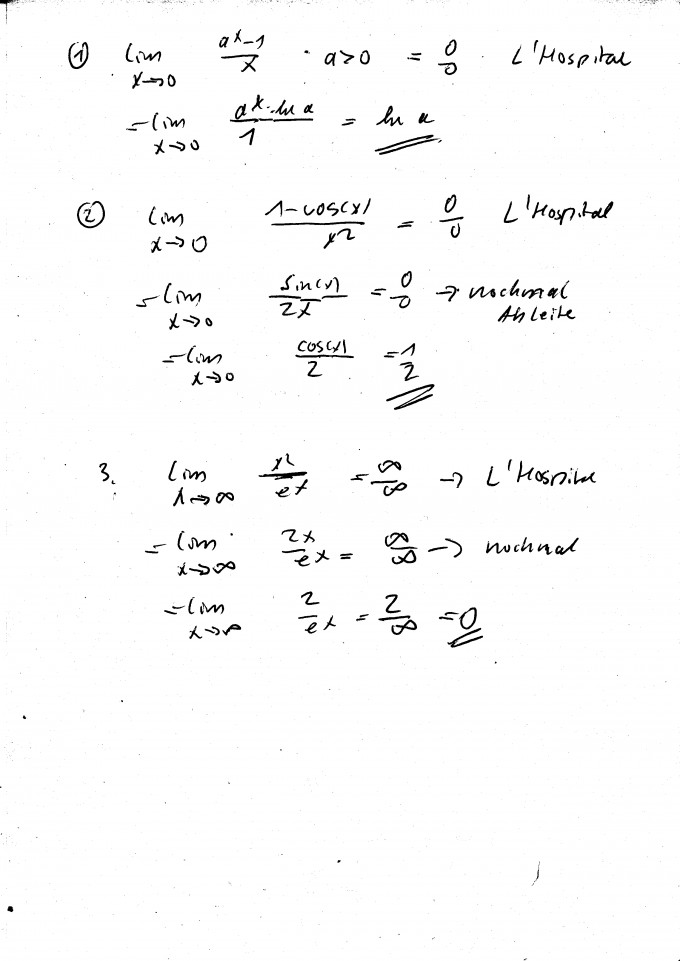 ① lim x→0 a^x-1/x · a>0 = 0/0 · L'Hospital
= lim x→0 a^x·ln a/1 = ln a
② lim x→0 1-cos(x)/x² = 0/0 L'Hospital
= lim x→0 sin(x)/2x = 0/0 → nochmal
Ableite
= lim x→0 cos(x)/2 = 1/2
3. lim x→∞ x²/e^x = ∞/∞ → L'Hospital
= lim x→∞ 2x/e^x = ∞/∞ → nochmal
= lim x→∞ 2/e^x = 2/∞ = 0